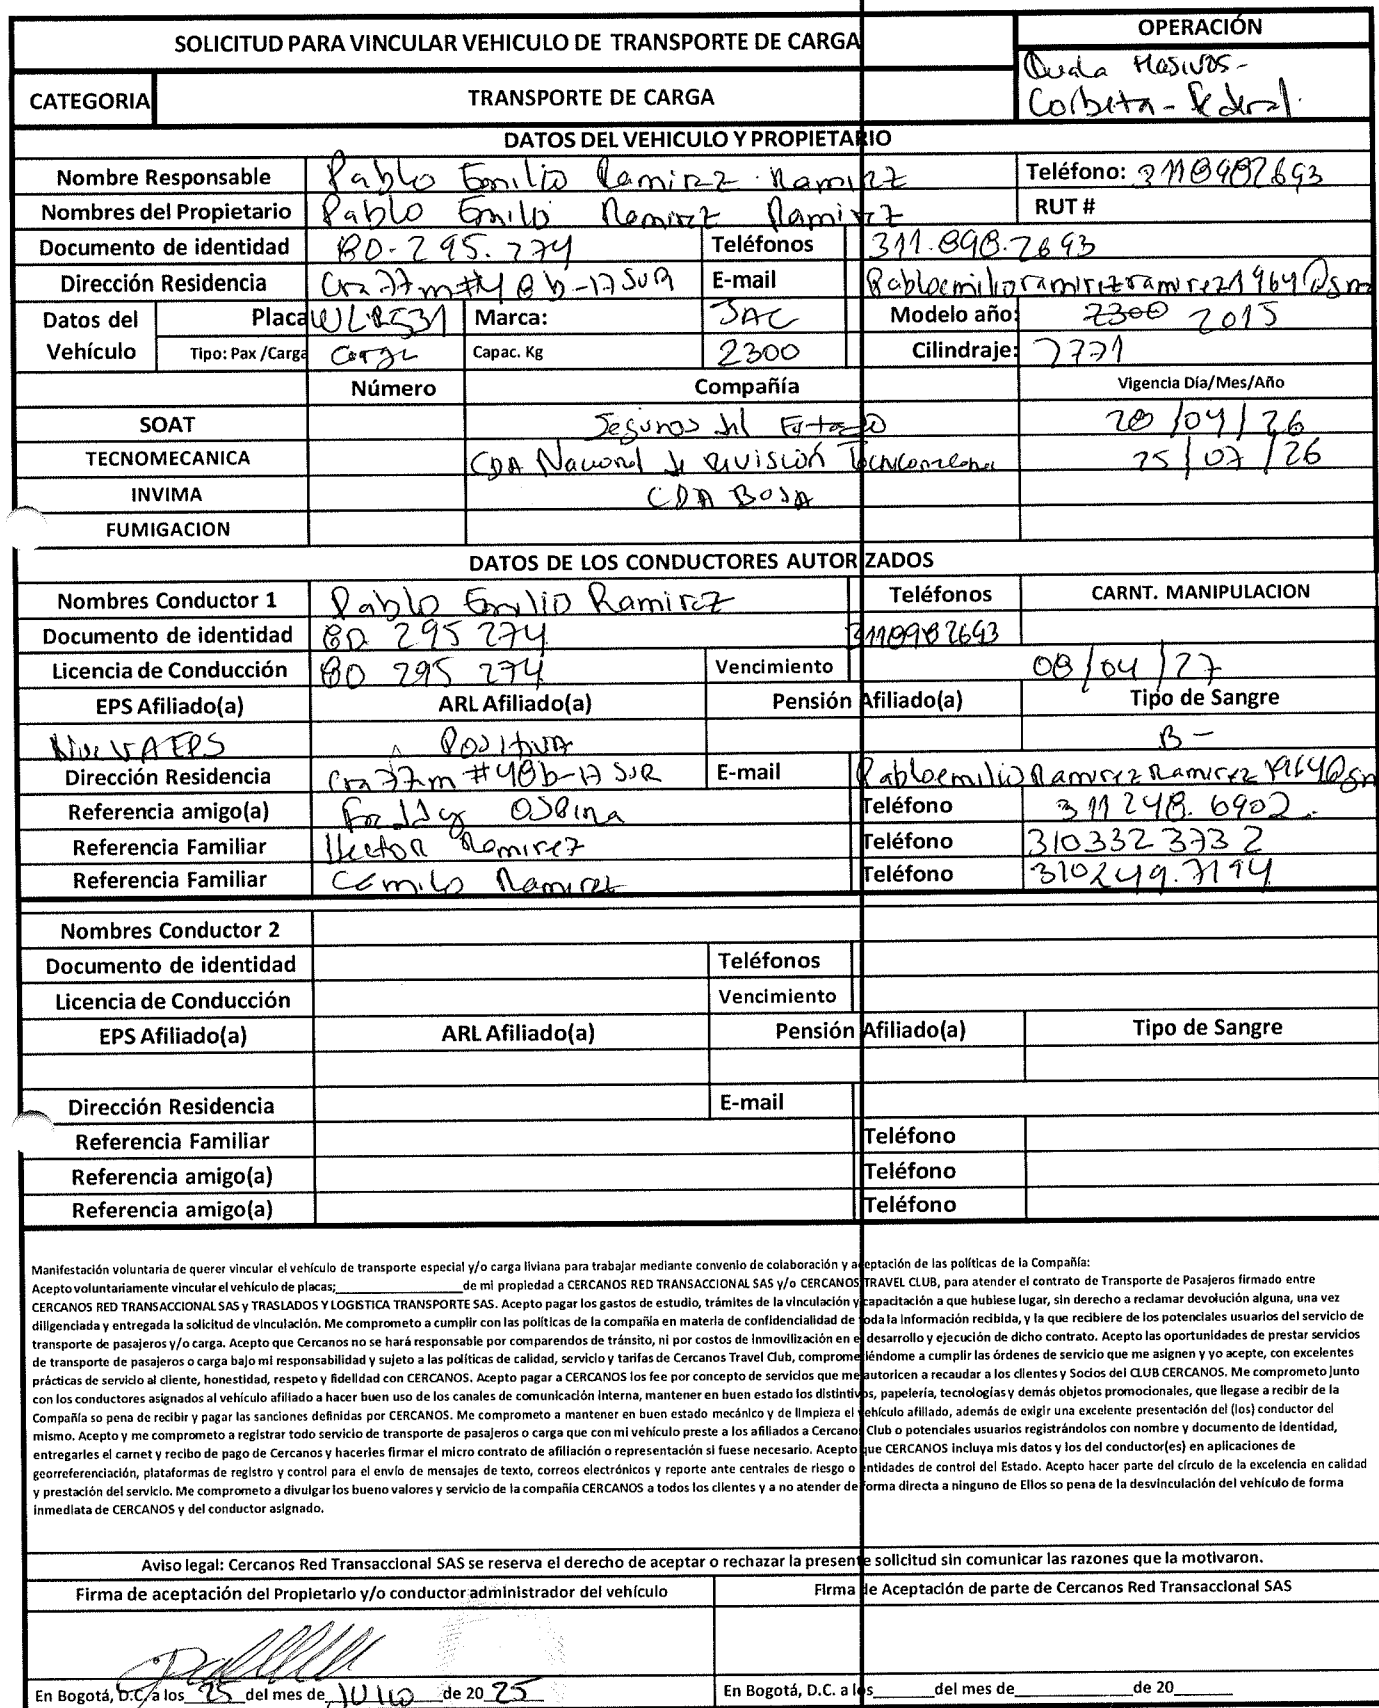 SOLICITUD PARA VINCULAR VEHICULO DE TRANSPORTE DE CARGA OPERACIÓN
Masivos-
CATEGORIA TRANSPORTE DE CARGA Corbeta - Federal.
DATOS DEL VEHICULO Y PROPIETARIO
Nombre Responsable Pablo Emilio Ramirez Ramirez Teléfono: 3118982693
Nombres del Propietario Pablo Emilio Ramirez Ramirez RUT #
Documento de identidad 80.295.274 Teléfonos 311.898.2693
Dirección Residencia Cra 77m #48b-17 SUR E-mail Pabloemilioramirezramirez1964@gm
Datos del Placa WLR531 Marca: JAC Modelo año: 2300 2015
Vehículo Tipo: Pax /Carga Carga Capac. Kg 2300 Cilindraje: 2771
Número Compañía Vigencia Día/Mes/Año
SOAT Seguros del Estado 28/04/26
TECNOMECANICA CDA Nacional de revisión Tecnicomecanica 25/07/26
INVIMA CDA BOSA
FUMIGACION
DATOS DE LOS CONDUCTORES AUTORIZADOS
Nombres Conductor 1 Pablo Emilio Ramirez Teléfonos CARNT. MANIPULACION
Documento de identidad 80 295 274 3118982693
Licencia de Conducción 80 295 274 Vencimiento 08/04/27
EPS Afiliado(a) ARL Afiliado(a) Pensión Afiliado(a) Tipo de Sangre
Nueva EPS Positiva B-
Dirección Residencia Cra 77m #48b-17 SUR E-mail PabloemilioRamirezRamirez1964@gm
Referencia amigo(a) Freddy Ospina Teléfono 311248.6902.
Referencia Familiar Hector Ramirez Teléfono 310332 3732
Referencia Familiar Camilo Ramirez Teléfono 310249.7194
Nombres Conductor 2
Documento de identidad Teléfonos
Licencia de Conducción Vencimiento
EPS Afiliado(a) ARL Afiliado(a) Pensión Afiliado(a) Tipo de Sangre
Dirección Residencia E-mail
Referencia Familiar Teléfono
Referencia amigo(a) Teléfono
Referencia amigo(a) Teléfono
Manifestación voluntaria de querer vincular el vehículo de transporte especial y/o carga liviana para trabajar mediante convenio de colaboración y aceptación de las políticas de la Compañía:
Acepto voluntariamente vincular el vehículo de placas;____________________de mi propiedad a CERCANOS RED TRANSACCIONAL SAS y/o CERCANOS TRAVEL CLUB, para atender el contrato de Transporte de Pasajeros firmado entre
CERCANOS RED TRANSACCIONAL SAS y TRASLADOS Y LOGISTICA TRANSPORTE SAS. Acepto pagar los gastos de estudio, trámites de la vinculación y capacitación a que hubiese lugar, sin derecho a reclamar devolución alguna, una vez
diligenciada y entregada la solicitud de vinculación. Me comprometo a cumplir con las políticas de la compañía en materia de confidencialidad de toda la información recibida, y la que recibiere de los potenciales usuarios del servicio de
transporte de pasajeros y/o carga. Acepto que Cercanos no se hará responsable por comparendos de tránsito, ni por costos de inmovilización en el desarrollo y ejecución de dicho contrato. Acepto las oportunidades de prestar servicios
de transporte de pasajeros o carga bajo mi responsabilidad y sujeto a las políticas de calidad, servicio y tarifas de Cercanos Travel Club, comprometiéndome a cumplir las órdenes de servicio que me asignen y yo acepte, con excelentes
prácticas de servicio al cliente, honestidad, respeto y fidelidad con CERCANOS. Acepto pagar a CERCANOS los fee por concepto de servicios que me autoricen a recaudar a los clientes y Socios del CLUB CERCANOS. Me comprometo junto
con los conductores asignados al vehículo afiliado a hacer buen uso de los canales de comunicación interna, mantener en buen estado los distintivos, papelería, tecnologías y demás objetos promocionales, que llegase a recibir de la
Compañía so pena de recibir y pagar las sanciones definidas por CERCANOS. Me comprometo a mantener en buen estado mecánico y de limpieza el vehículo afiliado, además de exigir una excelente presentación del (los) conductor del
mismo. Acepto y me comprometo a registrar todo servicio de transporte de pasajeros o carga que con mi vehículo preste a los afiliados a Cercanos Club o potenciales usuarios registrándolos con nombre y documento de identidad,
entregarles el carnet y recibo de pago de Cercanos y hacerles firmar el micro contrato de afiliación o representación si fuese necesario. Acepto que CERCANOS incluya mis datos y los del conductor(es) en aplicaciones de
georreferenciación, plataformas de registro y control para el envío de mensajes de texto, correos electrónicos y reporte ante centrales de riesgo o entidades de control del Estado. Acepto hacer parte del círculo de la excelencia en calidad
y prestación del servicio. Me comprometo a divulgar los bueno valores y servicio de la compañía CERCANOS a todos los clientes y a no atender de forma directa a ninguno de Ellos so pena de la desvinculación del vehículo de forma
inmediata de CERCANOS y del conductor asignado.
Aviso legal: Cercanos Red Transaccional SAS se reserva el derecho de aceptar o rechazar la presente solicitud sin comunicar las razones que la motivaron.
Firma de aceptación del Propietario y/o conductor administrador del vehículo Firma de Aceptación de parte de Cercanos Red Transaccional SAS
En Bogotá, D.C. a los 25 del mes de JULIO de 20 25 En Bogotá, D.C. a los______del mes de____________de 20______